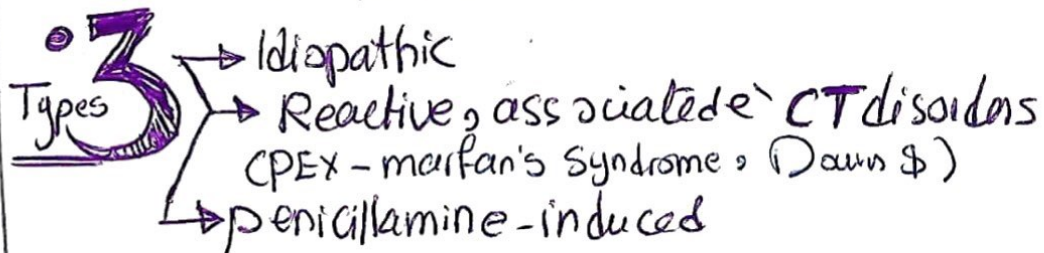 3 Types
Idiopathic
Reactive, associated è CT disorders
(PEX - marfan's Syndrome, Down $)
penicillamine-induced